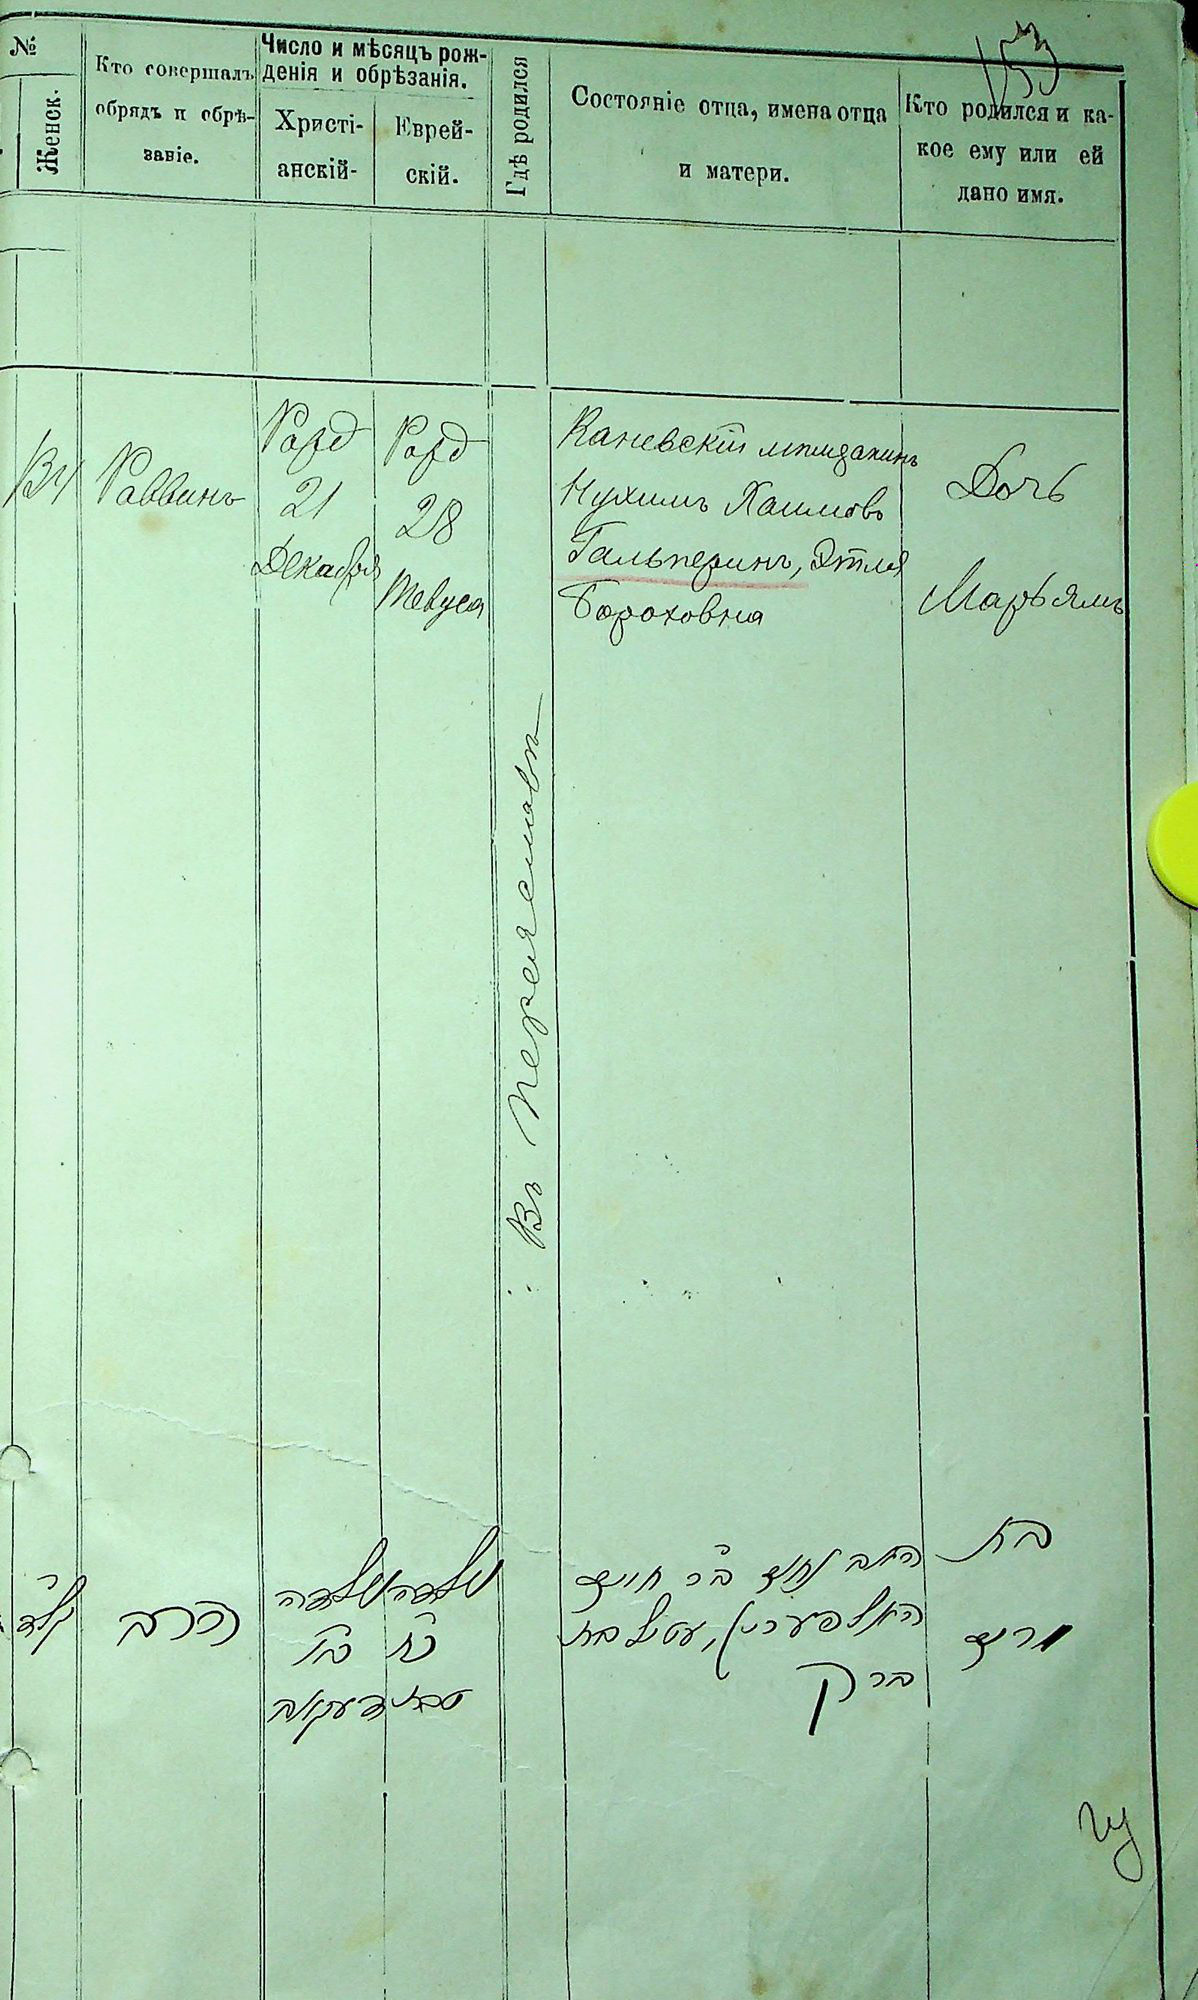 153
№
Женск.
Кто совершалъ
обрядъ и обрѣ-
заніе.
Число и мѣсяцъ рож-
денія и обрѣзанія.
Христі-
анскій-
Еврей-
скій.
Гдѣ родился
Состояніе отца, имена отца
и матери.
Кто родился и ка-
кое ему или ей
дано имя.
134
Раввинъ
Рожд
21
Декабря
Рожд
28
Тевуса
Въ Переяславѣ
Каневскій мѣщанинъ
Нухимъ Хаимовъ
Гальперинъ, Этля
Бороховна
Дочь
Марьямъ
קלד
הרב
כח
טבת
האב נחום ב״ר חיים
האלפערין, עטיל בת
ברוך
בת
מרים